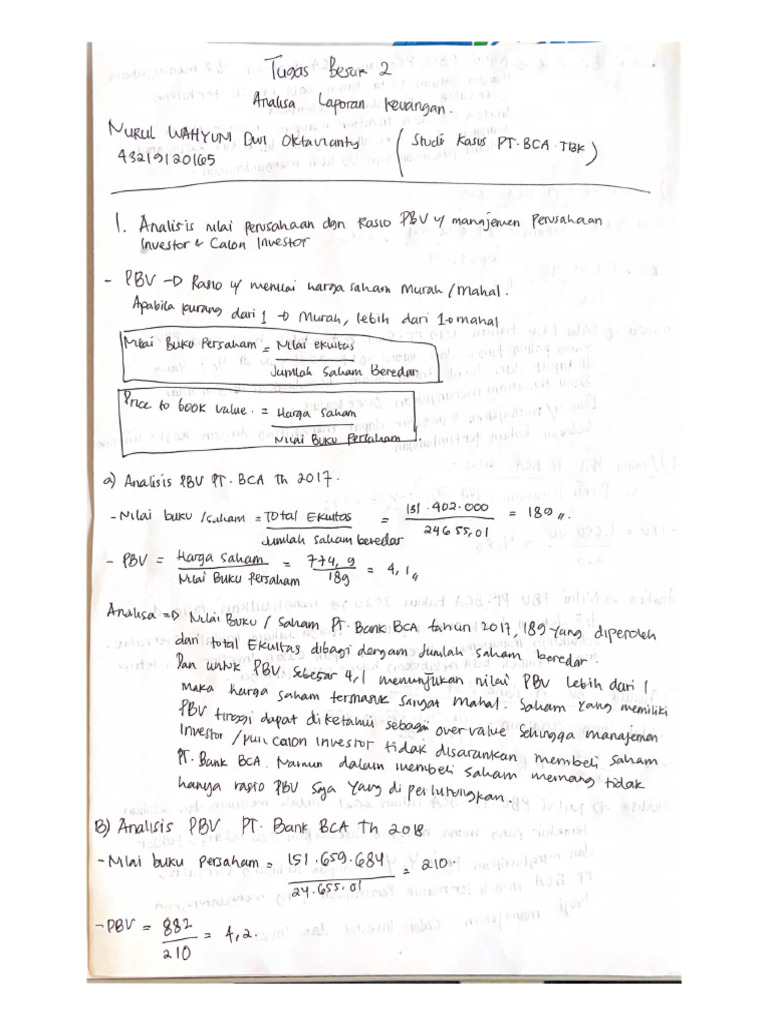 Tugas Besar 2
Analisa Laporan Keuangan.
NURUL WAHYUNI Dwi Oktavianty
43219120165
(Studi Kasus PT. BCA. TBK)
1. Analisis nilai perusahaan dgn Rasio PBV u/ manajemen Perusahaan
Investor & Calon Investor
- PBV → Rasio u/ menilai harga saham Murah / Mahal.
Apabila kurang dari 1 → Murah, lebih dari 1 → mahal
Nilai Buku Persaham = Nilai ekuitas
Jumlah Saham Beredar
Price to book value. = Harga Saham
Nilai Buku Persaham
a) Analisis PBV PT. BCA Th 2017.
- Nilai buku /saham = Total Ekuitas = 131.402.000 = 189 ,,.
Jumlah Saham beredar 24655,01
- PBV = Harga Saham = 774,9 = 4,1 ,,
Nilai Buku Persaham 189
Analisa => Nilai Buku / Saham PT. Bank BCA tahun 2017, 189 yang diperoleh
dari total Ekuitas dibagi dengam Jumlah saham beredar.
Dan untuk PBV, sebesar 4,1 menunjukan nilai PBV lebih dari 1
maka harga saham termasuk sangat mahal. Saham yang memiliki
PBV tinggi dapat diketahui sebagai over value sehingga manajemen
Investor /pun calon Investor tidak disarankan membeli saham
PT. Bank BCA. Namun dalam membeli saham memang tidak
hanya rasio PBV saja yang diperhitungkan.
B) Analisis PBV PT. Bank BCA Th 2018
- Nilai buku Persaham = 151.659.684 = 210.
24.655.01
- PBV = 882 = 4,2.
210